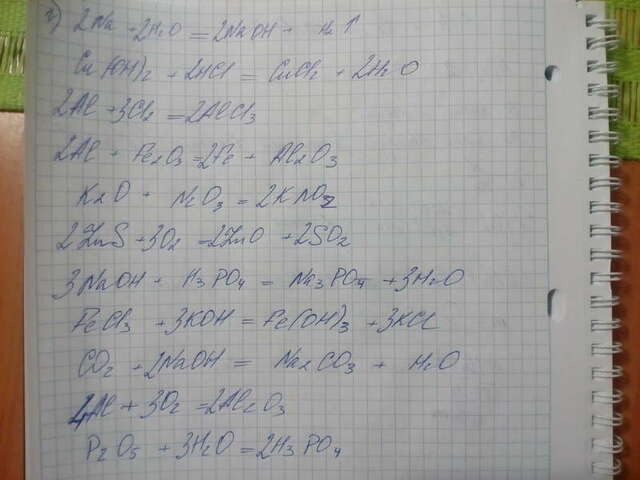 г) 2Na + 2H2O = 2NaOH + H2↑
Cu(OH)2 + 2HCl = CuCl2 + 2H2O
2Al + 3Cl2 = 2AlCl3
2Al + Fe2O3 = 2Fe + Al2O3
K2O + N2O3 = 2KNO2
2ZnS + 3O2 = 2ZnO + 2SO2
3NaOH + H3PO4 = Na3PO4 + 3H2O
FeCl3 + 3KOH = Fe(OH)3 + 3KCl
CO2 + 2NaOH = Na2CO3 + H2O
4Al + 3O2 = 2Al2O3
P2O5 + 3H2O = 2H3PO4